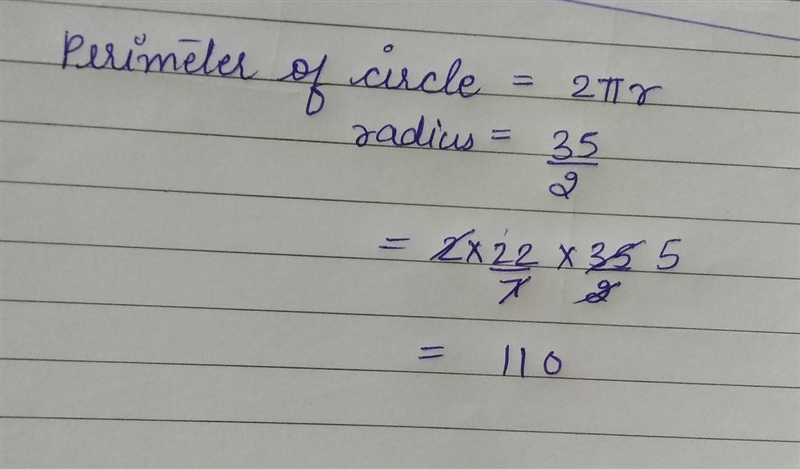 Perimeter of circle = 2πr
radius = 35/2
= 2 × 22/7 × 35/2 5
= 110